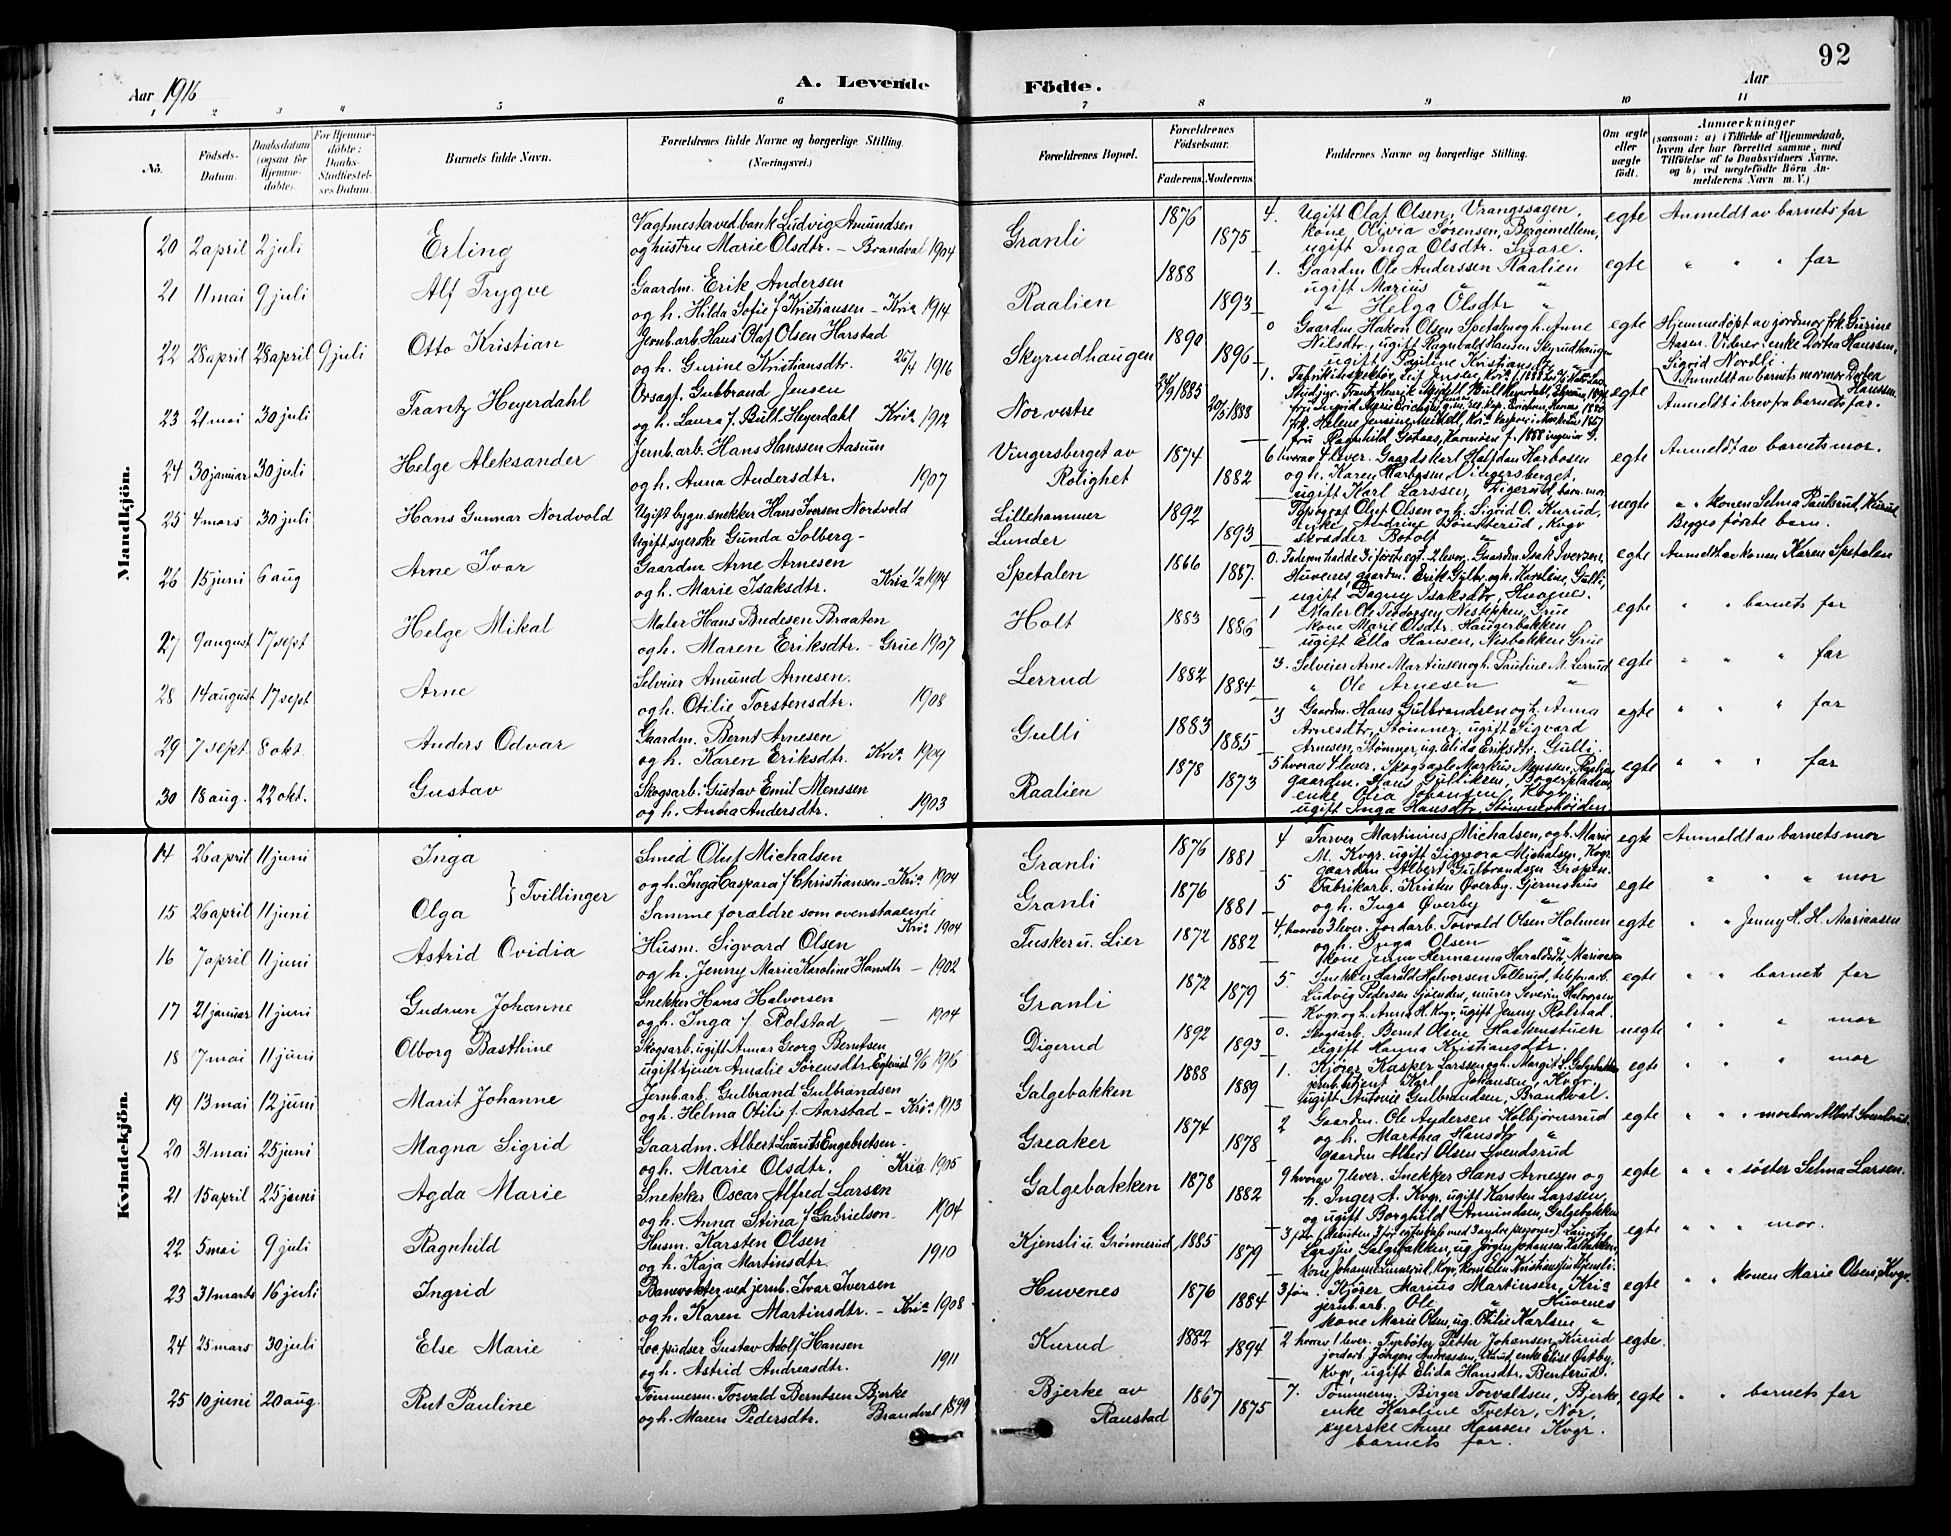 92
Aar 1916
A. Levende
Födte.
Aar
1 2 3 4 5 6 7 8 9 10 11
No.
Födsels-Datum.
Daabsdatum (ogsaa for Hjemme-döbte).
For Hjemme-döbte: Daabs-Stadfæstel-ses Datum.
Barnets fulde Navn.
Forældrenes fulde Navne og borgerlige Stilling.
(Næringsvei.)
Forældrenes Bopæl.
Forældrenes Födselsaar.
Faderens. Moderens.
Faddernes Navne og borgerlige Stilling.
Om ægte eller uægte födt.
Anmærkninger
(saasom: a) i Tilfælde af Hjemmedaab, hvem der har forrettet samme, med Tilföielse af to Daabsvidners Navne, og b) ved uægtefödte Börn An-melderens Navn m. V.)
Mandkjön.
20 2 april 2 juli Erling
Vagtmester ved bank Ludvig Amundsen
og hustru Marie Olsdtr. - Brandval 1904
Granli 1876 1875
4. Ugift Olaf Olsen, Vrangssagen,
kone Olivia Sørensen, Bergimellem,
ugift Inga Olsdtr. Snare.
egte Anmeldt av barnets far
21 11 mai 9 juli Alf Trygve
Gaardm. Erik Andersen
og h. Hilda Sofie f Kristiansen - Kria 1914
Raalien 1888 1893
1. Gaardm Ole Anderssen Raalien
ugift Marius " "
" Helga Olsdtr "
egte " " " far
22 28 april 28 april 9 juli Otto Kristian
Jernb.arb Hans Olaf Olsen Harstad
og h. Gurine Kristiansdtr. 26/4 1916
Skyrudhaugen 1890 1896
0 Gaardm Hakon Olsen Spetalen og h. Anne
Nilsdtr., ugift Ragnvald Hansen Skyrudhaugen
ugift Pauline Kristiansdtr
egte Hjemmedøpt av jordmor frk. Gurine
Aasen. Vitner: enke Dortea Hanssen,
Sigrid Nordli.
Anmeldt av barnets mormor Dortea Hanssen.
23 21 mai 30 juli Frantz Heyerdahl
Ovsagf. Gulbrand Jensen
og h. Laura f. Bull-Heyerdahl Kria 1912
Nor vestre 24/9 1885 20/5 1888
1.
egte Anmeldt i brev fra barnets far.
24 30 januar 30 juli Helge Aleksander
Jernb.arb. Hans Hanssen Aasum
og h. Anna Andersdtr. 1907
Vingersberget av
Rolighet 1874 1882
6 hvorav 4 lever. Gaardskarl Halfdan Harbosen
og h. Karen Harbosen, Vingersberget,
ugift Karl Larssen, Digerud, barn. mor
egte Anmeldt av barnets mor.
25 4 mars 30 juli Hans Gunnar Nordvold
Ugift bygn.snekker Hans Iversen Nordvold
Ugift syerske Gunda Solberg -
Lillehammer
Lunder 1892 1893
Typograf Oluf Olsen og h. Sigrid O. Kurud,
enke Andrine Sønsterud, Kvgr
skrædder Botolf "
uegte " " konen Selma Paulsrud, Kurud
Begges første barn.
26 15 juni 6 aug Arne Ivar
Gaardm Arne Arnesen
og h. Marie Isaksdtr. Kria 1/2 1914
Spetalen 1866 1887.
0. Faderen hadde 3 i første egt. 2 lever. Gaardm. Isak Iversen,
Huvenes, gaardm. Erik Gulbr. og h. Karoline, Gulli,
ugift Dagny Isaksdtr, Huvenes.
egte Anmeldt av konen Karen Spetalen
27 9 august 17 sept Helge Mikal
Maler Hans Bredesen Braaten
og h. Maren Eriksdtr. - Grue 1907
Holt 1883 1886
1 Maler Ole Teodorsen Nesteppen, Grue
kone Marie Olsdtr. Haugerbakken
ugift Ella Hansen, Nesbakken Grue
egte " " barnets far
28 14 august 17 sept Arne
Selveier Amund Arnesen.
og h. Otilie Torstensdtr. 1908
Lerrud 1882 1884
3. Selveier Arne Martinsen og h. Pauline M. Lerrud
" Ole Arnesen "
egte " " " far
29 7 sept 8 okt. Anders Odvar
Gaardm. Bernt Arnesen
og h. Karen Eriksdtr. Kria 1909
Gulli 1883 1885
3 Gaardm. Hans Gulbrandsen og h. Anna
Arnesdtr, Stømner, ugift Sigvard
Arnesen, Stømner, ug. Elida Eriksdtr. Gulli.
egte " " " far
30 18 aug. 22 okt. Gustav
Skogsarb. Gustav Emil Menssen
og h. Anna Andersdtr. 1903
Raalien 1878 1873
5 hvorav 4 lever. Skogvagte Markus Menssen, Raalien
gaardm. Hans Gulliksen, Bogerpladsen,
enke Olia Johansen, Kvgr,
ugift Inga Hansdtr. Stømnerhøiden
egte " " " far
Kvindekjön.
14 26 april 11 juni Inga
Smed Oluf Michalsen
og h. Inga Caspara f. Christiansen - Kria 1904
Granli 1876 1881
4 Farver Martinius Michalsen, og h. Marie
M. Kvgr. ugift Signora Michalsen, Kvgr.
gaardm Albert Gulbrandsen Gropen.
egte Anmeldt av barnets mor
} Tvillinger
15 26 april 11 juni Olga
Samme forældre som ovenstaaende
Kria 1904
Granli 1876 1881
5 Fabrikarb. Kristen Øverby, Gjermshus
og h. Inga Øverby "
egte " " " mor
16 7 april 11 juni Astrid Ovidia
Husm. Sigvard Olsen
og h. Jenny Marie Karoline Hansdtr - 1902
Tusker u. Lier 1872 1882
4, hvorav 3 lever. Jordarb. Torvald Olsen Holmen
og h. Inga Olsen "
kone Jenny Hermanna Haraldsdtr, Mariaasen
egte " " Jenny H. H. Mariaasen
17 21 januar 11 juni Gudrun Johanne
Snekker Hans Halvorsen
og h. Inga f. Rolstad - 1904
Granli 1872 1879
5. Snekker Harald Halvorsen Tallerud, telefonarb.
Ludvig Pedersen Sjøenden, murer Severin Halvorsen
Kvgr. og h. Anna H. Kvgr, ugift Jenny Rolstad.
egte " " barnets far
18 7 mai 11 juni Olborg Basthine
Skogsarb. ugift Annar Georg Berntsen
ugift tjener Amalie Sørensdtr. Egtevist 9/6 1916
Digerud 1892 1893
0. Skogsarb. Bernt Olsen Haakenstuen
ugift Hanna Kristiansdtr.
uegte " " " mor
19 13 mai 12 juni Marit Johanne
Jernb.arb. Gulbrand Gulbrandsen
og h. Helma Otilie f. Aarstad - Kria 1913
Galgebakken 1888 1889
1. Kjører Kasper Larssen og h. Margit S. Galgebakken
jernb.betjent Karl Johansen, Kvgr.
ugift Antonie Gulbrandsen, Brandval.
egte " " " mor
20 31 mai 25 juni Magna Sigrid
Gaardm. Albert Laurits Engebretsen -
og h. Marie Olsdtr. Kria 1905
Greaker 1874 1878
2 Gaardm. Ole Andersen Kolbjørnsrud
og h. Marthea Hansdtr "
gaardm Albert Olsen Svendsrud
egte " " " morbror Albert Svendsrud.
21 15 april 25 juni Agda Marie
Snekker Oscar Alfred Larsen
og h. Anna Stina f Gabrielson. 1904
Galgebakken 1878 1882
9 hvorav 7 lever. Snekker Hans Arnesen og
h. Inger A. Kvgr, ugift Karsten Larssen,
og ugift Borghild Amundsen, Galgebakken
egte " " " søster Selma Larsen.
22 5 mai 9 juli Ragnhild
Husm. Karsten Olsen
og h. Kaja Martinsdtr. 1910
Kjensli u. Grønnerud 1885 1879
Larssen, Galgebakken, ug. Jørgen Johansen Kalbakken,
egte " " " mor.
23 31 marts 16 juli Ingrid
Banvokter ved jernb. Ivar Iversen
og h. Karen Martinsdtr. - Kria 1908
Huvenes 1876 1884
3 før. Kjører Marius Martinsen, Kria
jernb.arb. Ole " Huvenes
kone Marie Olsen, ug. Otilie Karlsen "
egte " " konen Marie Olsen, Kvgr.
24 25 mars 30 juli Else Marie
Loc.pudser Gustav Adolf Hansen
og h. Astrid Andreasdtr. 1911
Kurud 1882 1894
2 hvorav 1 lever. Fyrbøter Petter Johansen, Kurud
jordarb Jørgen Andreassen, Kurud, enke Elise Østby,
Kvgr, ugift Elida Hansdtr. Benterud.
egte.
25 10 juni 20 aug. Rut Pauline
Tømmerm. Torvald Berntsen Bjerke
og h. Maren Pedersdtr. Brandval 1899
Bjerke av
Ranstad 1867 1875
7. Tømmerm. Birger Torvaldsen, Bjerke,
enke Karoline Tveter, Nor,
syerske Anne Hansen Kvgr.
barnets far.
egte " " barnets far